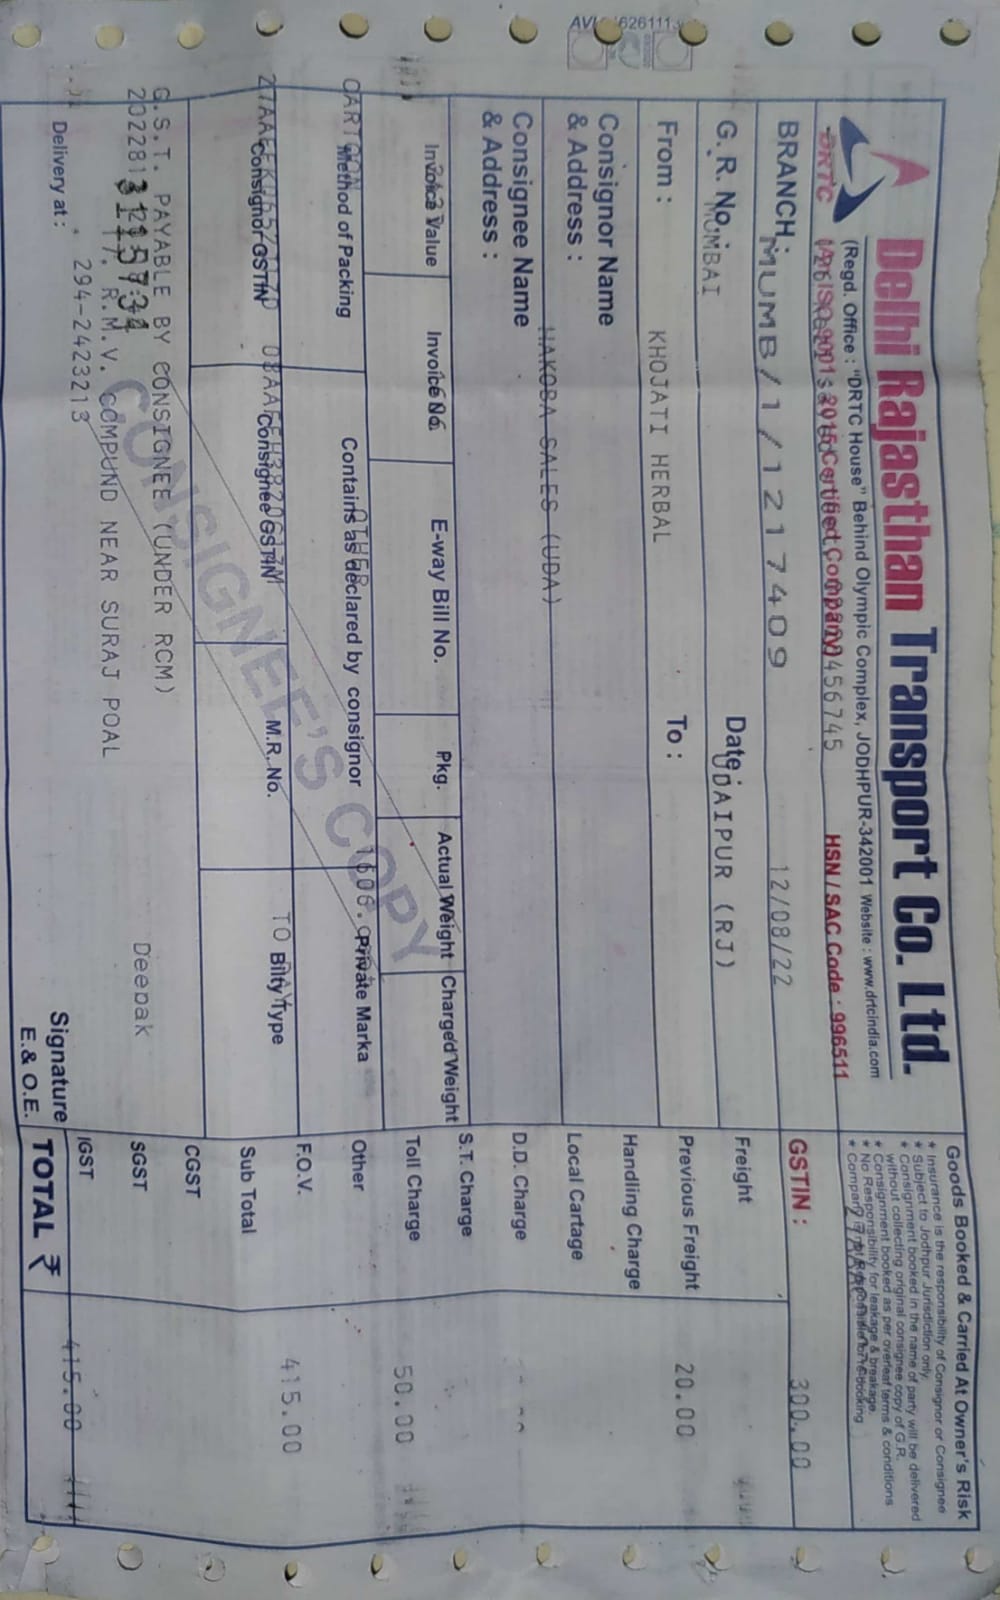 Delhi Rajasthan Transport Co. Ltd.
(Regd. Office : "DRTC House" Behind Olympic Complex, JODHPUR-342001 Website : www.drtcindia.com
DRTC
(An ISO 9001 : 2015 Certified Company)
HSN / SAC Code : 996511
Goods Booked & Carried At Owner's Risk
* Insurance is the responsibility of Consignor or Consignee
* Subject to Jodhpur Jurisdiction only.
* Consignment booked in the name of party will be delivered
without collecting original consignee copy of G.R.
* Consignment booked as per overleaf terms & conditions
* No Responsibility for leakage & breakage.
BRANCH :
MUMB/1/1217409
12/08/22
GSTIN :
300.00
G. R. No. :
MUMBAI
Date :
UDAIPUR (RJ)
Freight
From :
KHOJATI HERBAL
To :
Previous Freight
20.00
Consignor Name
& Address :
Handling Charge
HAKOBA SALES (UDA)
Local Cartage
Consignee Name
& Address :
D.D. Charge
S.T. Charge
Invoice Value
Invoice No.
E-way Bill No.
Pkg.
Actual Weight
Charged Weight
Toll Charge
50.00
CARTOON
Method of Packing
OTHER
Contains as declared by consignor
Private Marka
Other
F.O.V.
415.00
Consignor GSTIN
Consignee GSTIN
M.R. No.
Bilty Type
Sub Total
CONSIGNEE'S COPY
CGST
G.S.T. PAYABLE BY CONSIGNEE (UNDER RCM)
Deepak
SGST
R.M.V. COMPUND NEAR SURAJ POAL
294-2423213
IGST
Delivery at :
Signature
415.00
E. & O.E.
TOTAL ₹